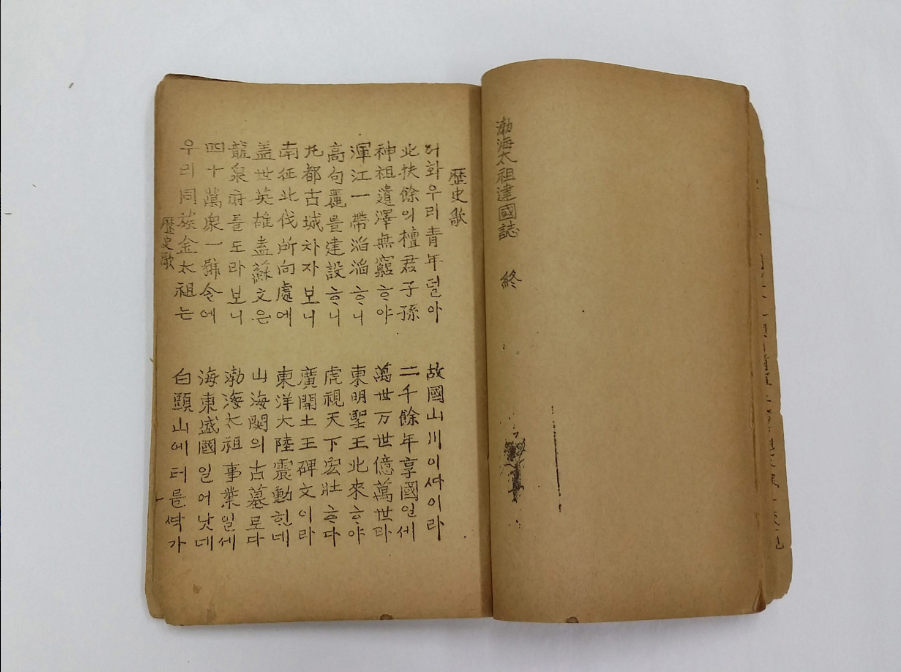 渤海太祖建國誌 終
歷史歌
어화우리青年덜아 故國山川이
北扶餘의檀君子孫 二千餘年享國일세
神祖遺澤無窮ᄒᆞ야 萬世万世億萬世라
渾江一帶滔滔ᄒᆞ니 東明聖王北來ᄒᆞ야
高句麗를建設ᄒᆞ니 虎視天下宏壯ᄒᆞ다
丸都古城차자보니 廣開土王碑文이라
南征北伐所向處에 東洋大陸震動힌데
盖世英雄盖蘇文은 山海關의古墓로다
龍泉府를도라보니 渤海太祖事業일세
四十萬衆一號令에 海東盛國일어낫네
우리同族金太祖는 白頭山에터를ᄯᅡᆨ가
歷史歌